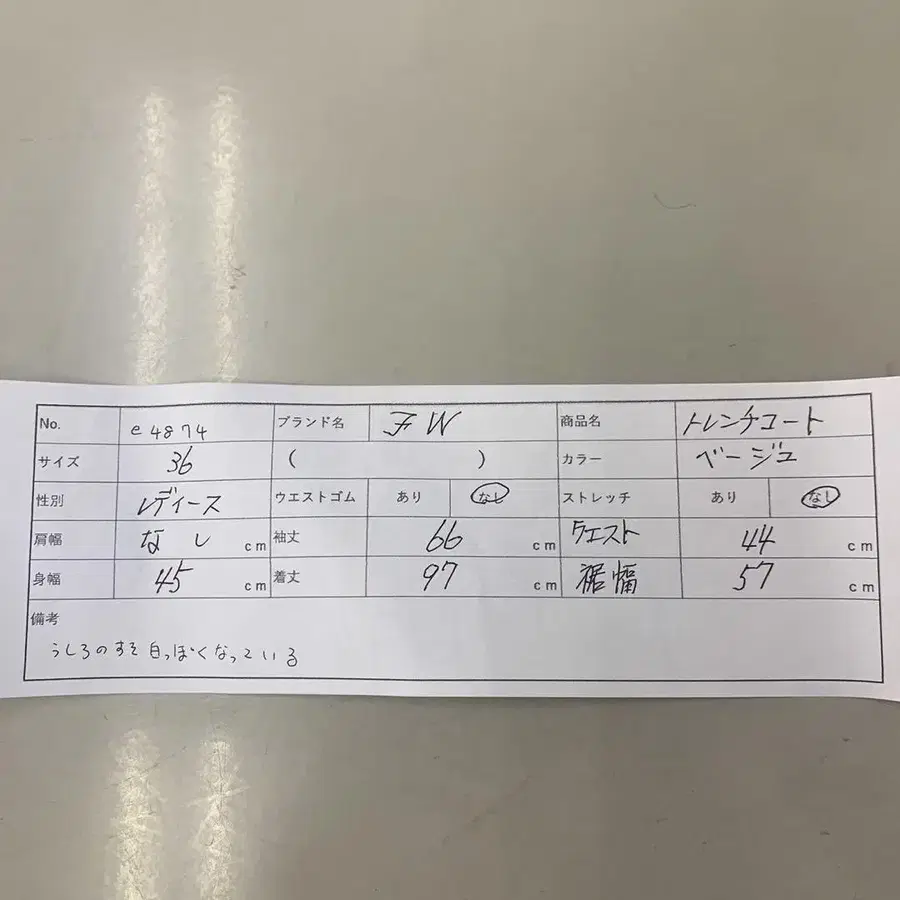 No. e4874 ブランド名 FW 商品名 トレンチコート
サイズ 36 ( ) カラー ベージュ
性別 レディース ウエストゴム あり なし ストレッチ あり なし
肩幅 なし cm 袖丈 66 cm ウエスト 44 cm
身幅 45 cm 着丈 97 cm 裾幅 57 cm
備考
うしろのすそ白っぽくなっている